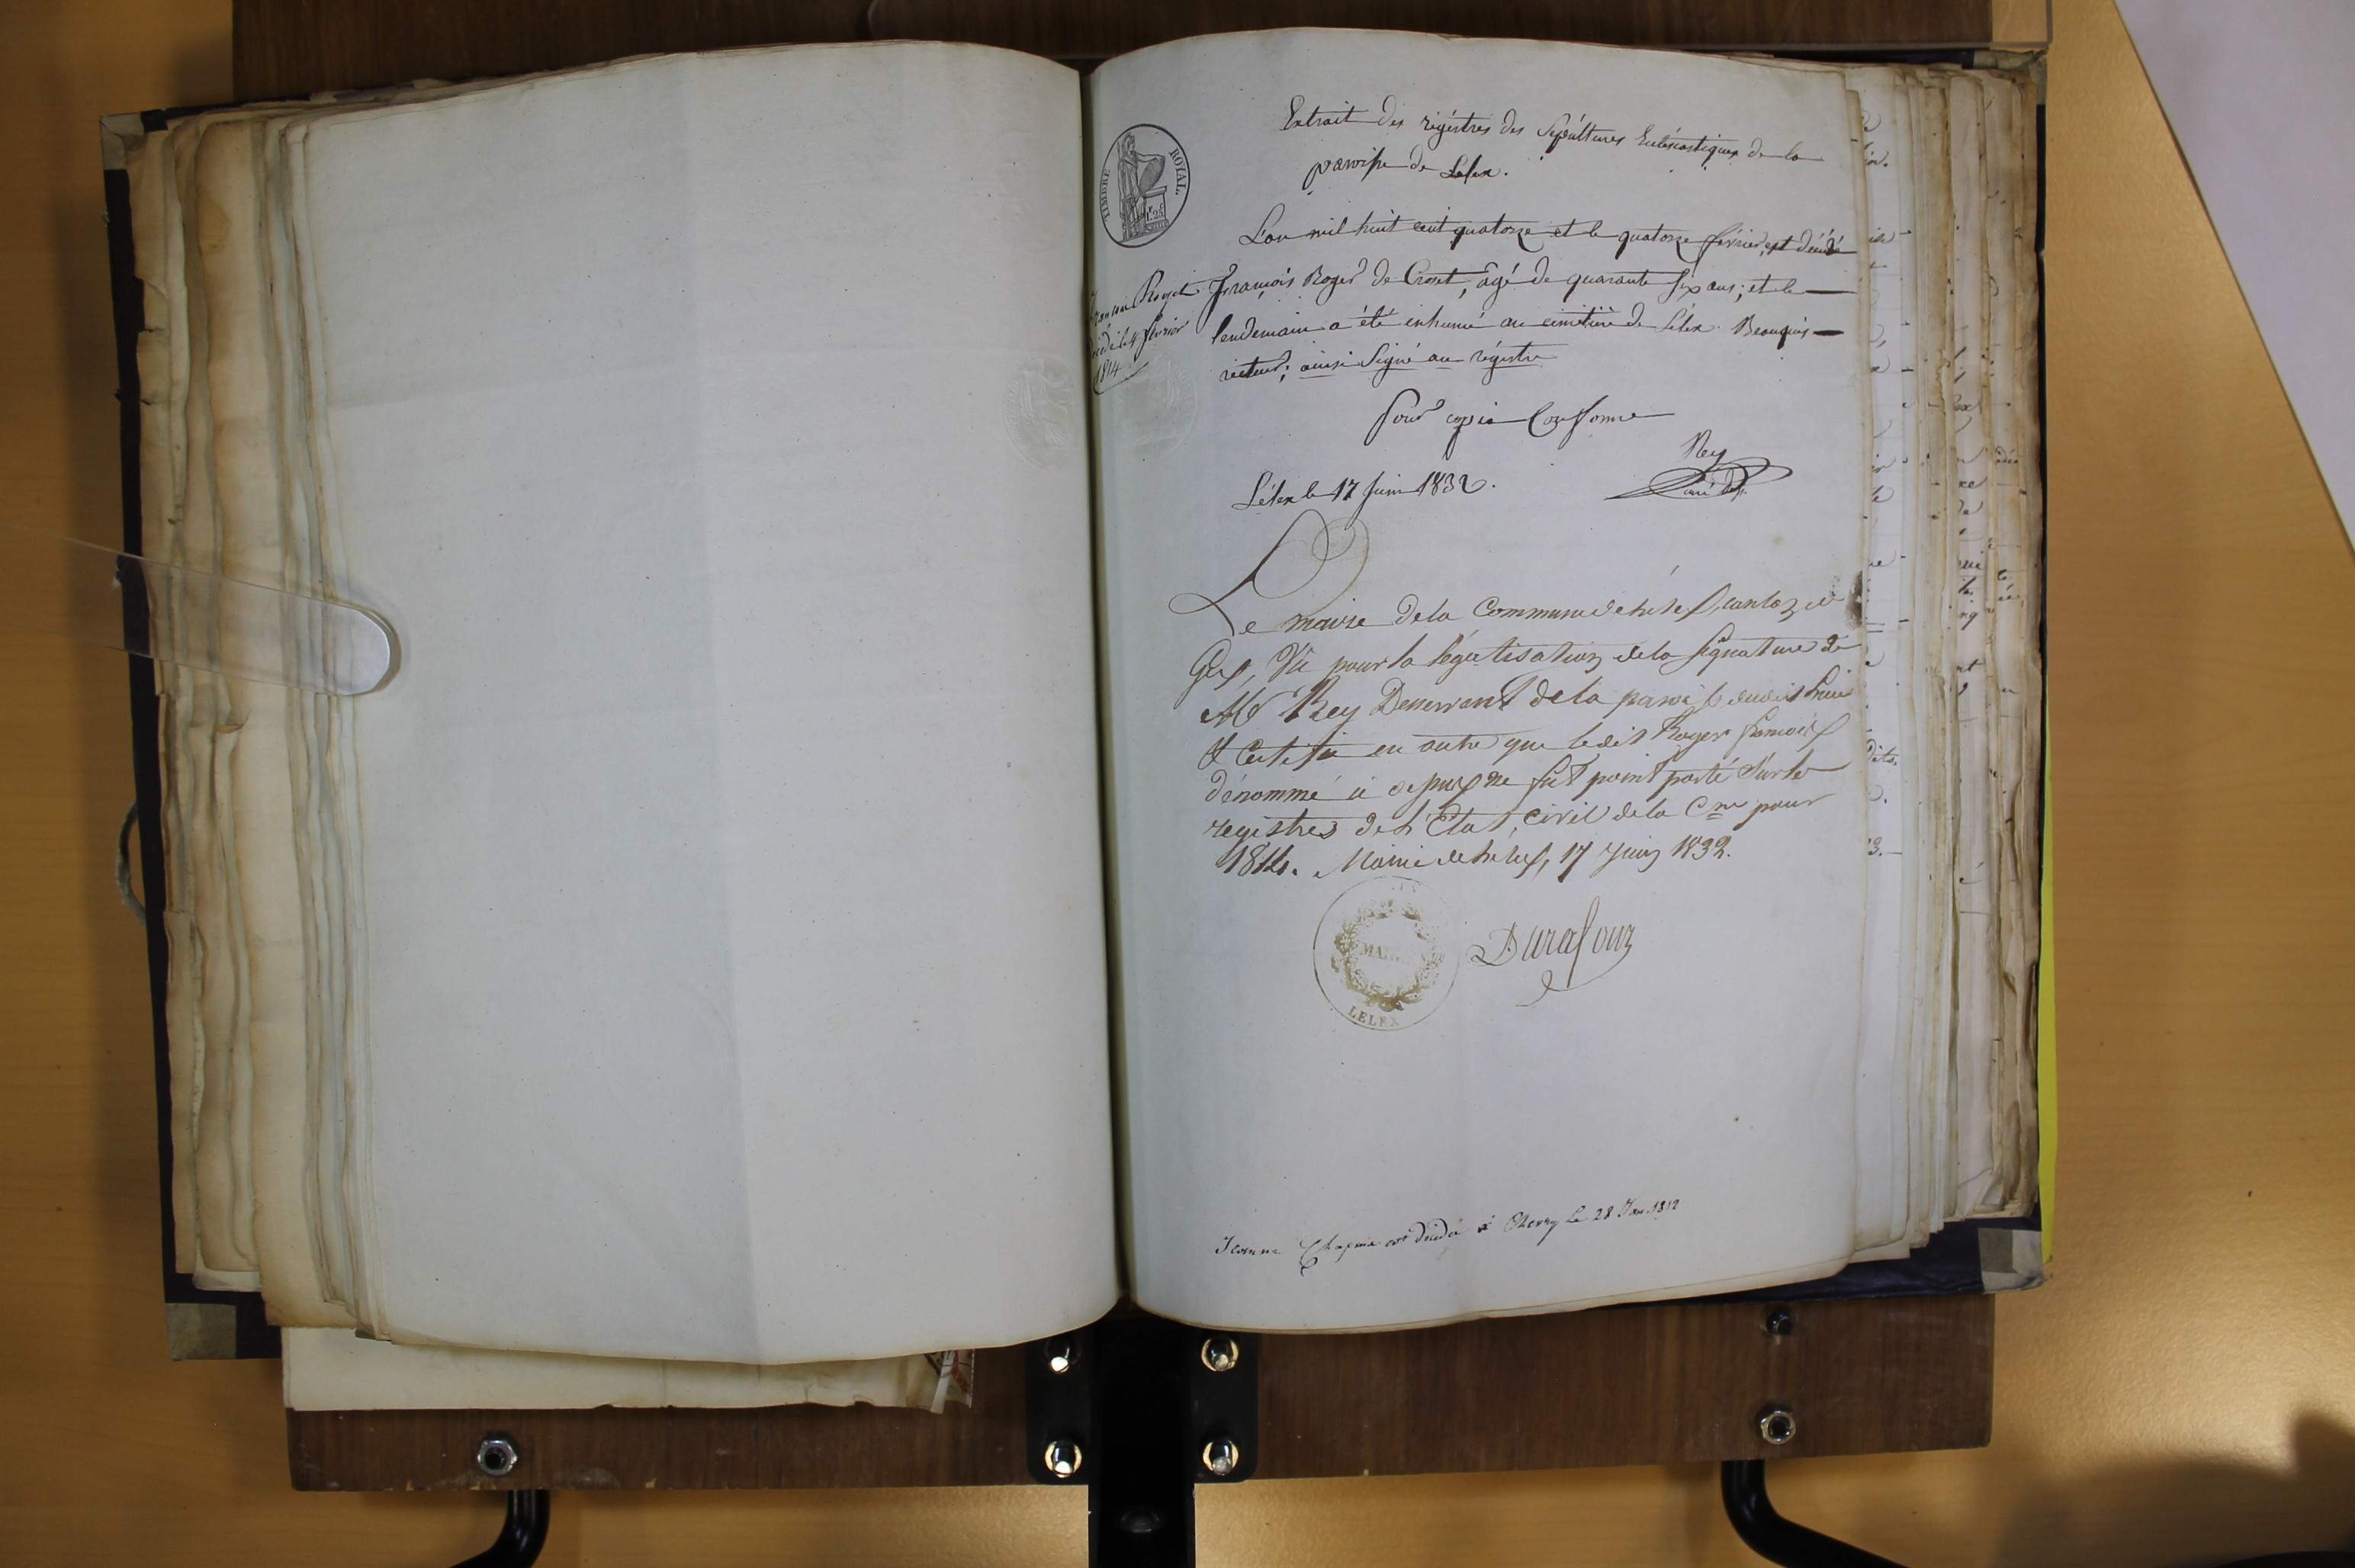 Extrait des régistres des Sépultures Eclésiastiques de la
paroisse de Lélex.
TIMBRE ROYAL
L'an mil huit cent quatorze et le quatorze février, est décédé
François Roger de Croset, âgé de quarante six ans; et le
lendemain a été enhumé au cimetière de Lélex. Beauquis
recteur; ainsi Signé au régistre
françois Roget
décédé le 14 février
1814
Pour copie Conforme
Rey
curé des.
Lélex le 17 Juin 1832.
Le maire de la Commune de Lélex, canton de
Gex, Vû pour la légalisation de la signature de
Mr Rey Desservant de la paroisse dudit Lieu
& Certifie en outre que ledit Roger françois
dénommé ci dessus ne fut point porté sur les
registres de l'Etat, civil de la Cne pour
1814. Mairie de Lélex, 17 juin 1832.
MAIRIE
LELEX
Durafour
Jeanne est décédée à Chevry le 28 Jan. 1812